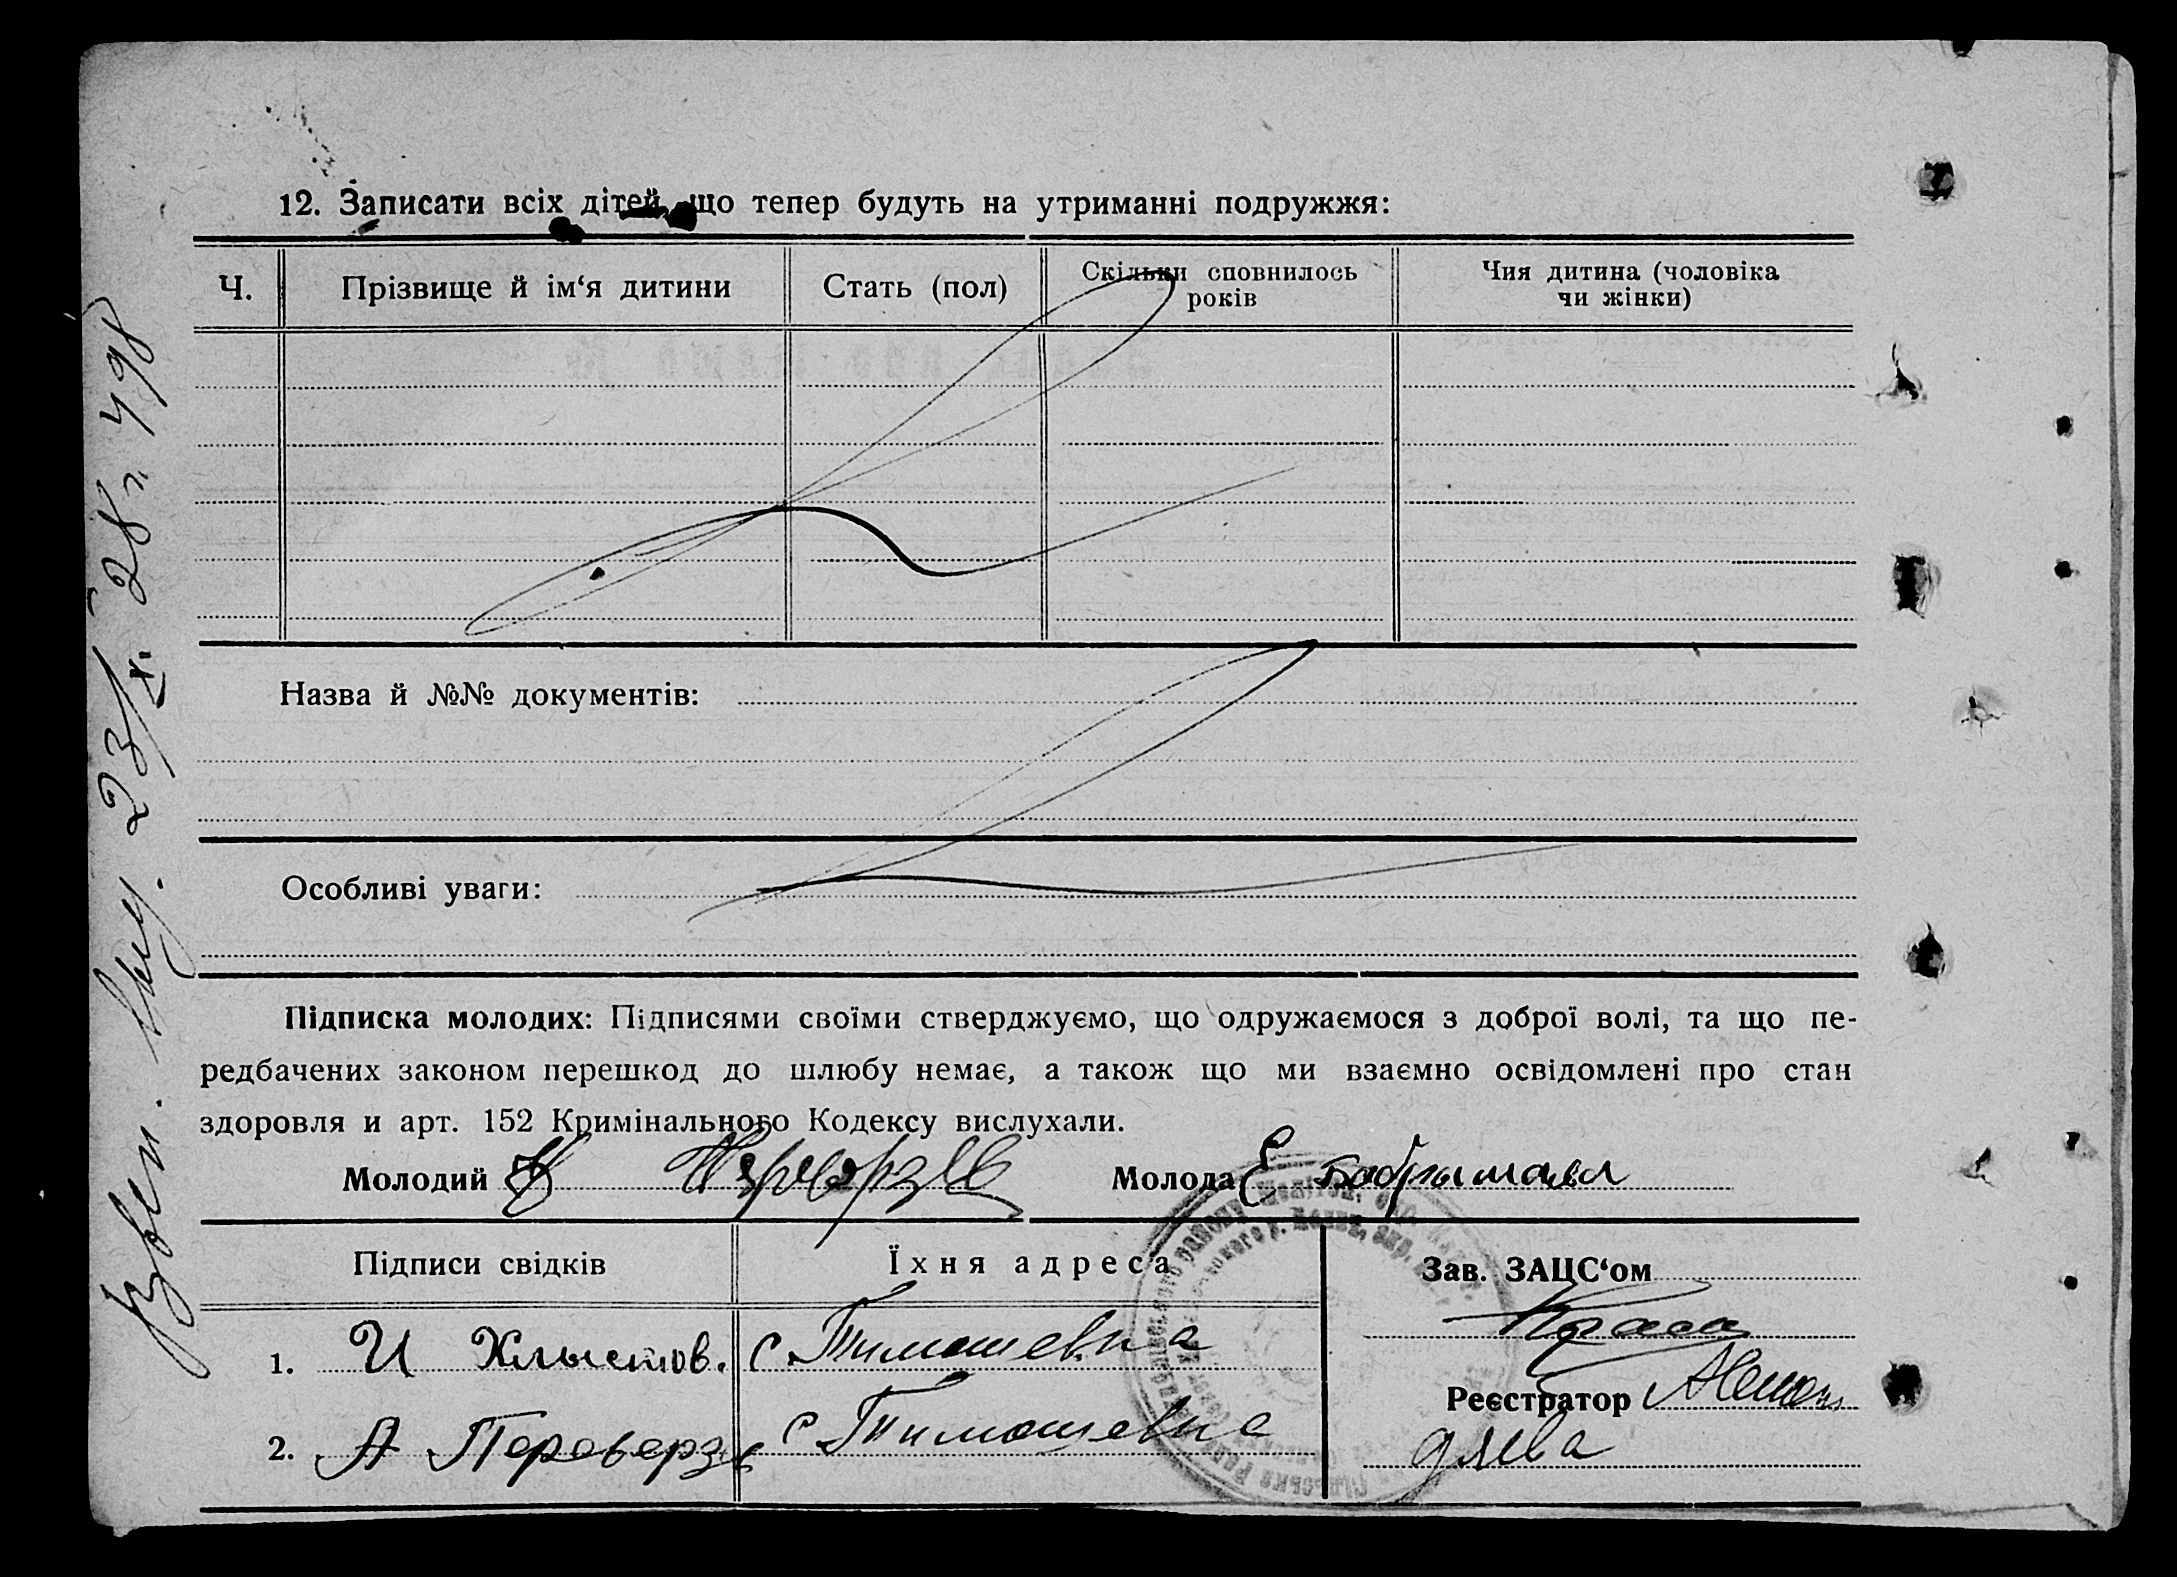 12. Записати всіх дітей, що тепер будуть на утриманні подружжя:
Ч. Прізвище й ім‘я дитини Стать (пол) Скільки сповнилось років Чия дитина (чоловіка чи жінки)
Назва й №№ документів:
Особливі уваги:
Підписка молодих: Підписями своїми стверджуємо, що одружаємося з доброї волі, та що пе-
редбачених законом перешкод до шлюбу немає, а також що ми взаємно освідомлені про стан
здоровля и арт. 152 Кримінального Кодексу вислухали.
Молодий Молода Е
Підписи свідків Їхня адреса Зав. ЗАЦС‘ом
1. И Хлыстов. с Тимошевка
Реєстратор
2. А Переверзев с Тимошевка
23/X. 28 г. 498